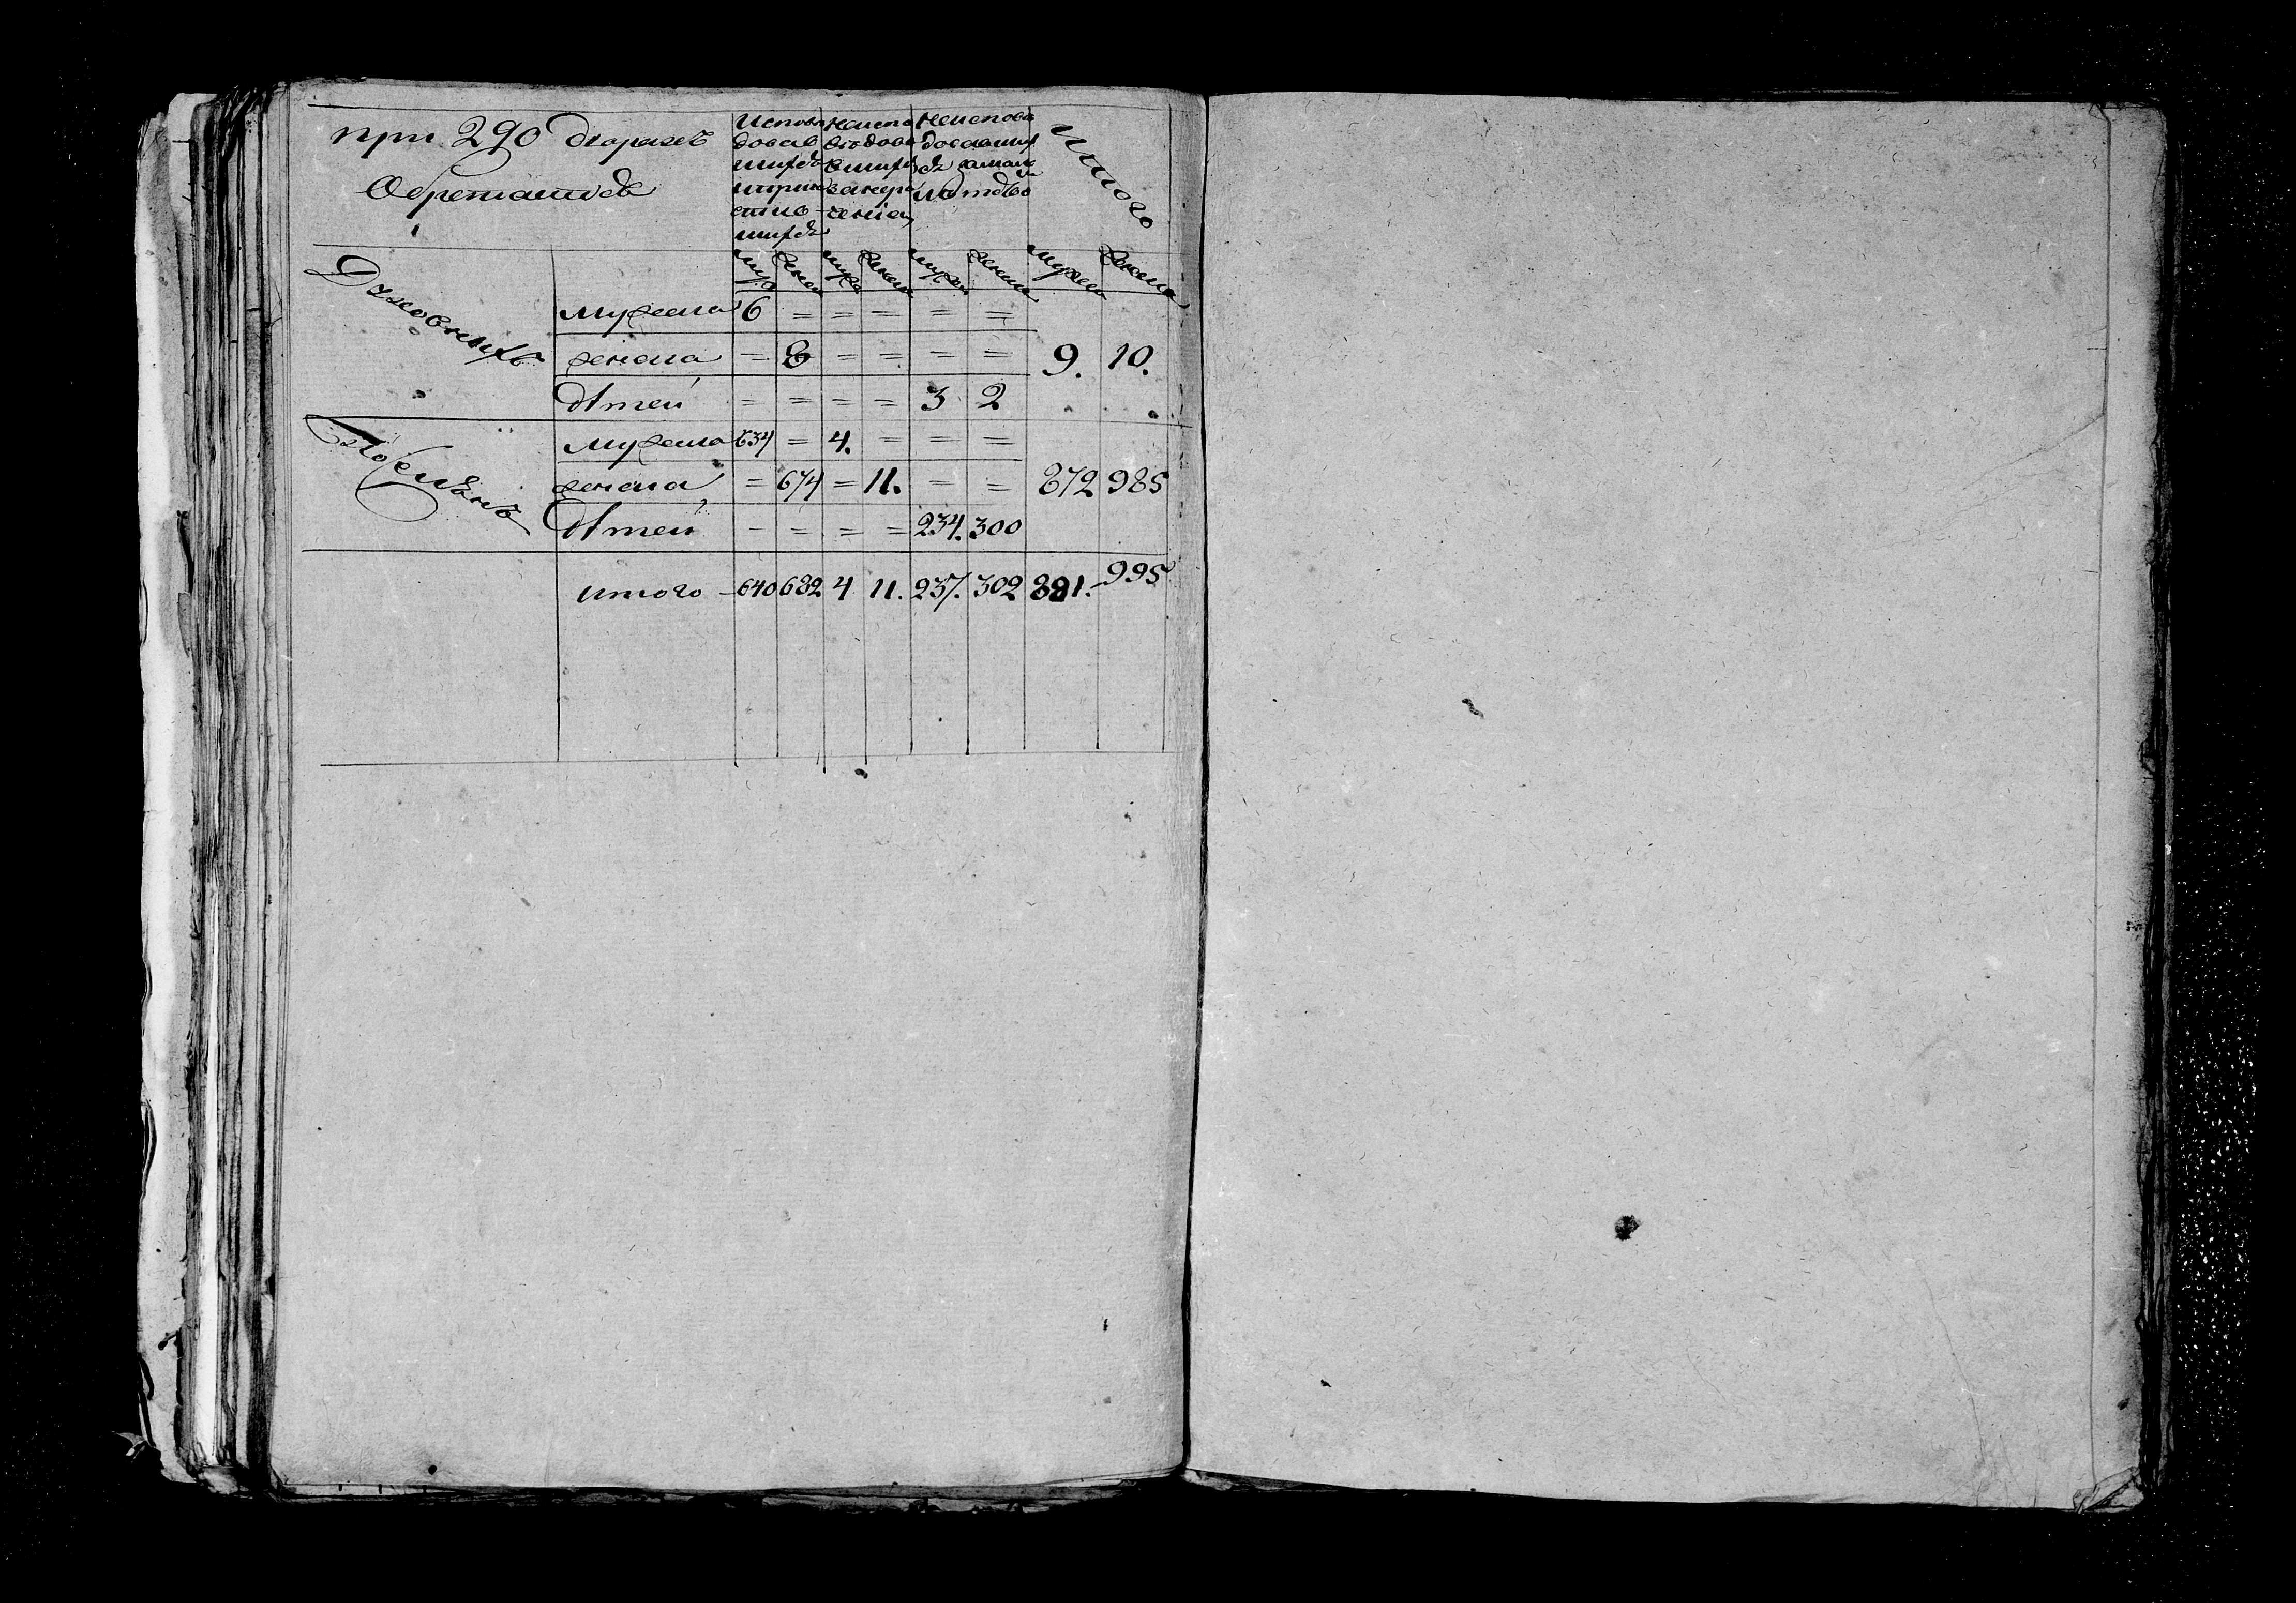 при 290 дворахъ
Обретаитсѧ
Исповѣ
довав
шихсѧ
ипри
стпо
шихсѧ
Неиспо
вѣдова
вшихсѧ
занера
ченіем
Неисповѣ
довавших
сѧ замало
лѣтство
Итого
муж женск муж женск муж женск мужеск женска
Духовныхъ
мужеска 6 = = = = =
женска = 8 = = = = 9. 10.
дѣтей = = = = 3 2
Поселѧнъ
мужеска 634 = 4. = = =
женска = 674 = 11. = = 872 985
дѣтей = = = = 234. 300
итого 640 682 4 11. 237. 302 881. 995